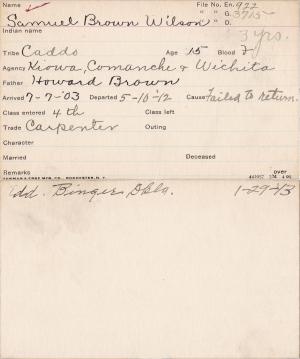 Name File No. En. 922
Samuel Brown Wilson " " G. 3715
Indian name " " D.
3 yrs.
Tribe Caddo Age 15 Blood
Agency Kiowa, Comanche & Wichita
Father Howard Brown
Arrived 7-7-'03 Departed 5-10-12 Cause failed to return.
Class entered 4th Class left
Trade Carpenter Outing
Character
Married Deceased
Remarks over
YAWMAN & ERBE MFG. CO., ROCHESTER, N.Y.
Add. Okla. 1-29-13